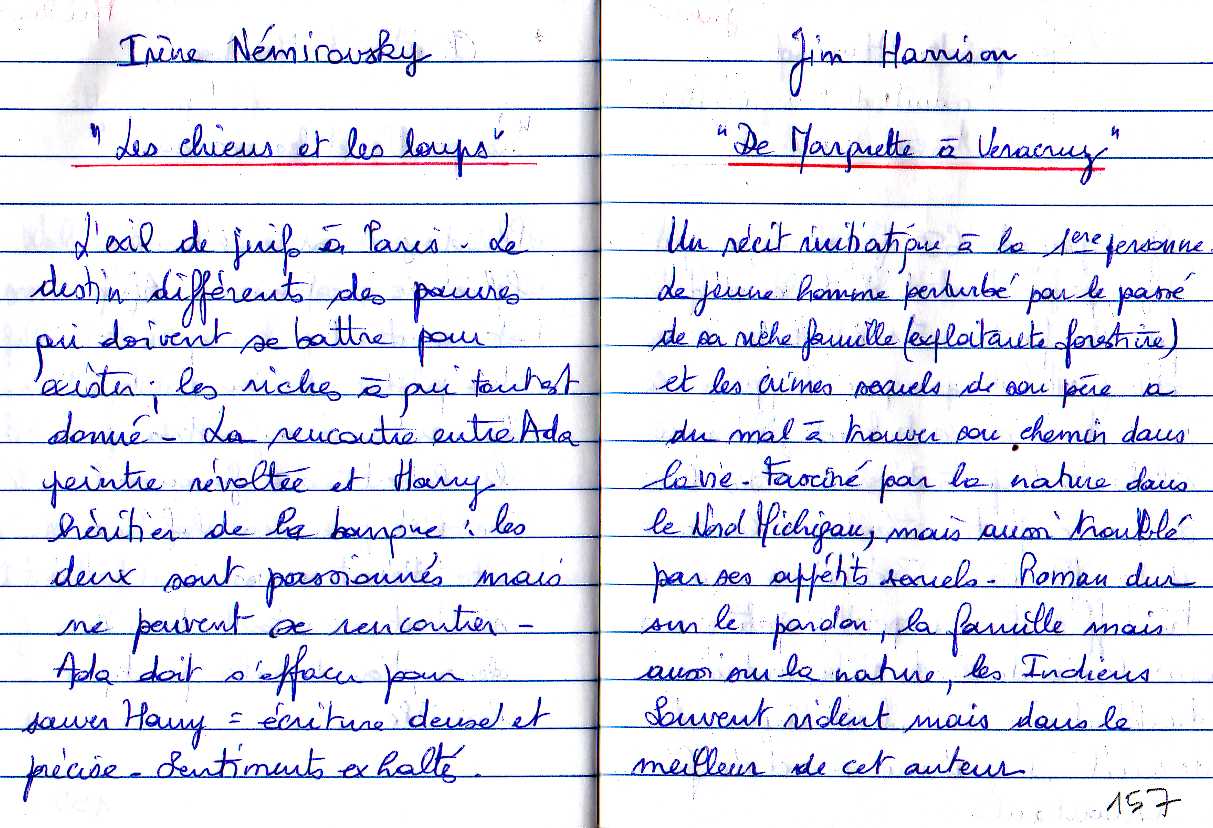 Irène Némirovsky
"Les chiens et les loups"
L'exil de juifs à Paris - Le
destin différents des pauvres
qui doivent se battre pour
exister ; les riches à qui tout est
donné - La rencontre entre Ada
peintre révoltée et Harry
héritier de la banque : les
deux sont passionnés mais
ne peuvent se rencontrer -
Ada doit s'effacer pour
sauver Harry = écriture dense et
précise - Sentiments exhalté.
Jim Harrison
"De Marquette à Veracruz"
Un récit initiatique à la 1ere personne.
Le jeune homme perturbé par le passé
de sa riche famille (exploitante forestière)
et les crimes sexuels de son père a
du mal à trouver son chemin dans
la vie - Fasciné par la nature dans
le Nord Michigan, mais aussi troublé
par ses appétits sexuels - Roman dur
sur le pardon, la famille mais
aussi sur la nature, les Indiens
Souvent mais dans le
meilleur de cet auteur
157